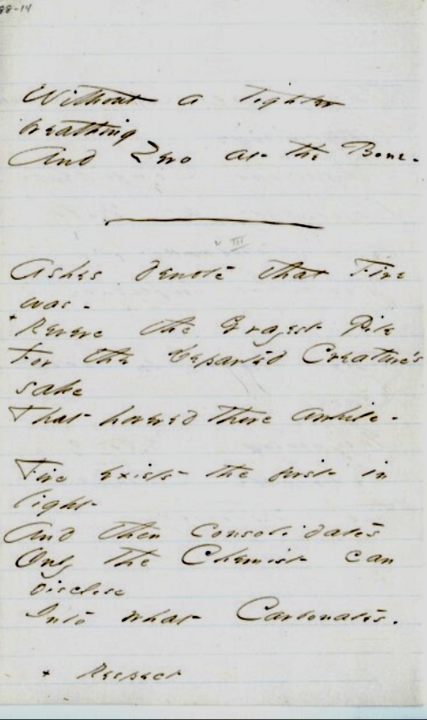 Without a tighter
breathing
And Zero at the Bone -
Ashes denote that Fire
was -
+ Revere the Grayest Pile
For the Departed Creature's
sake
That hovered there awhile -
Fire exists the first in
light
And then consolidates
Only the Chemist can
disclose
Into what Carbonates.
+ Respect